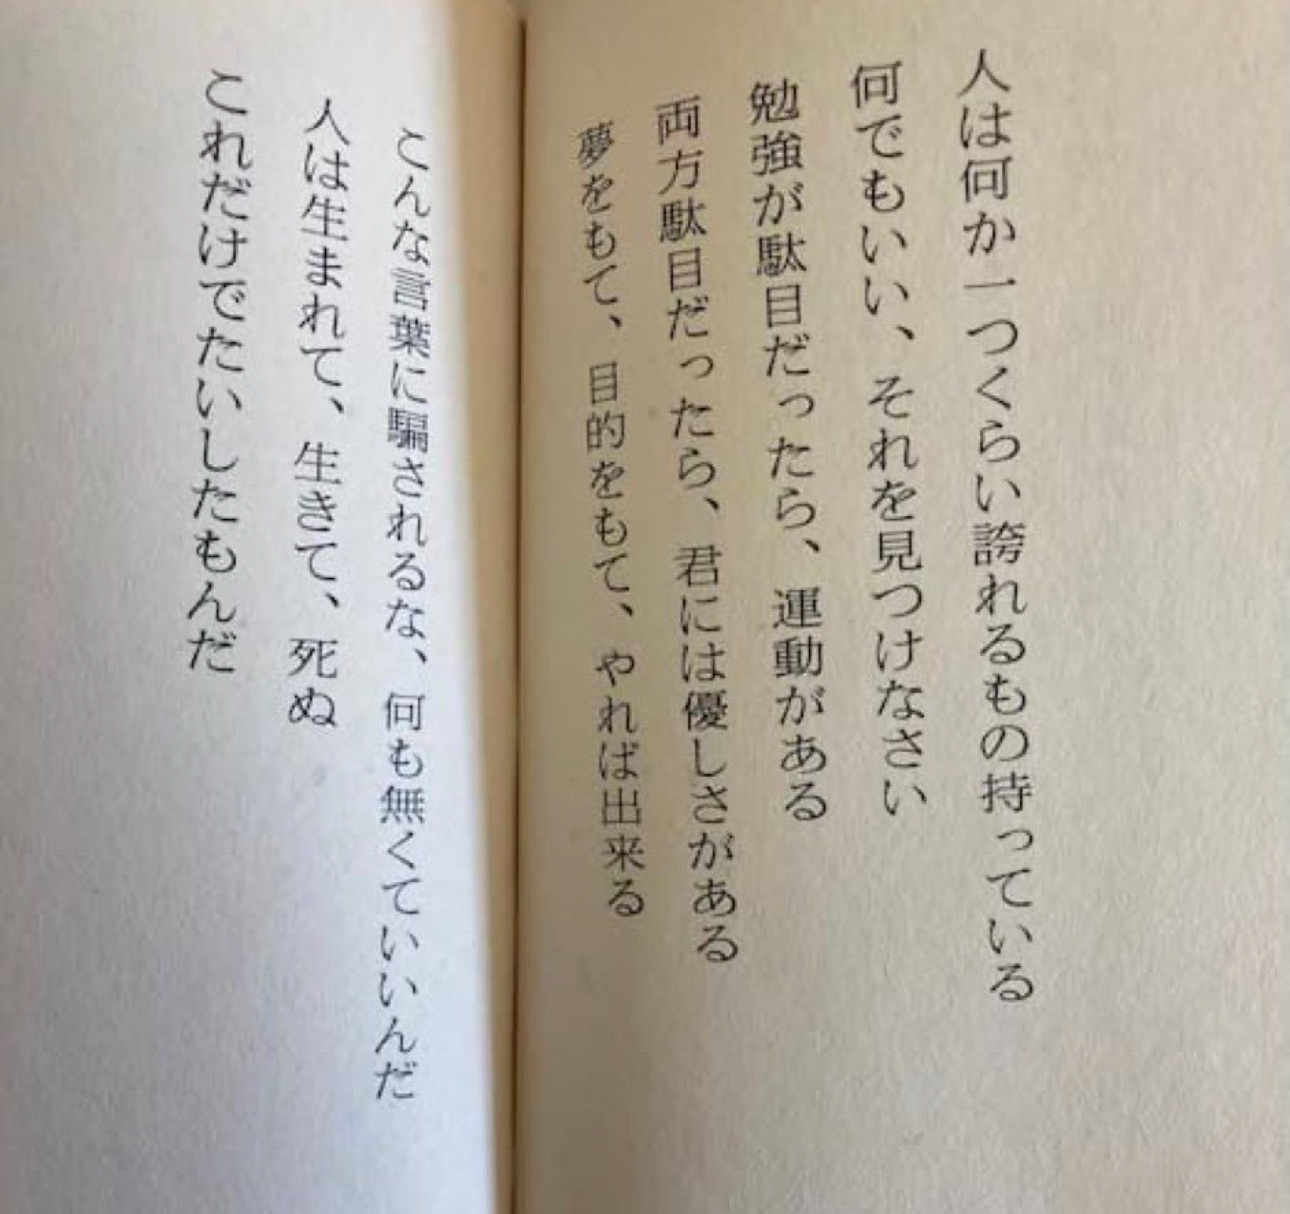 人は何か一つくらい誇れるもの持っている
何でもいい、それを見つけなさい
勉強が駄目だったら、運動がある
両方駄目だったら、君には優しさがある
夢をもて、目的をもて、やれば出来る
こんな言葉に騙されるな、何も無くていいんだ
人は生まれて、生きて、死ぬ
これだけでたいしたもんだ